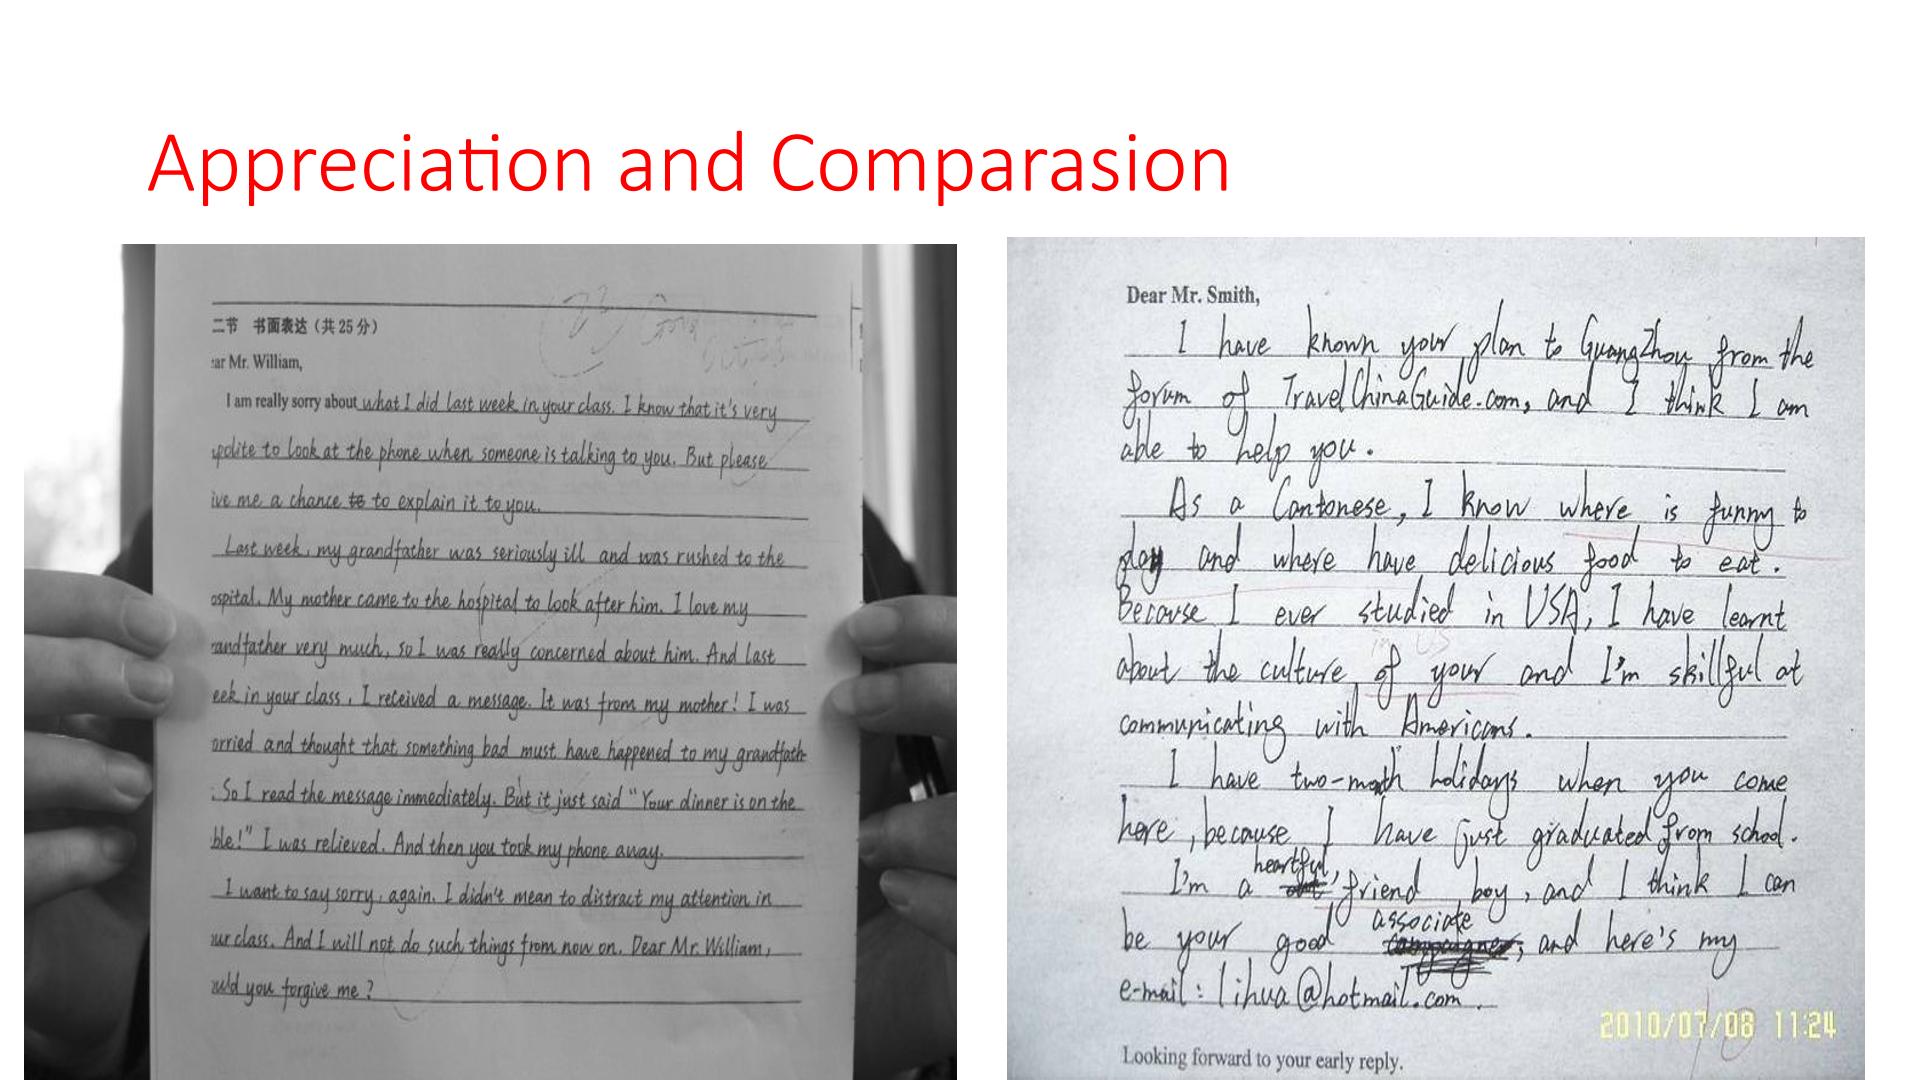 Appreciation and Comparasion
二节 书面表达（共25分）
ar Mr. William,
I am really sorry about what I did last week in your class. I know that it's very
polite to look at the phone when someone is talking to you. But please
ive me a chance to to explain it to you.
Last week, my grandfather was seriously ill and was rushed to the
ospital. My mother came to the hospital to look after him. I love my
randfather very much, so I was really concerned about him. And last
eek in your class, I received a message. It was from my mother! I was
orried and thought that something bad must have happened to my grandfath-
. So I read the message immediately. But it just said "Your dinner is on the
ble!" I was relieved. And then you took my phone away.
I want to say sorry, again. I didn't mean to distract my attention in
ur class. And I will not do such things from now on. Dear Mr. William,
ould you forgive me?
Dear Mr. Smith,
I have known your plan to GuangZhou from the
forum of TravelChinaGuide.com, and I think I am
able to help you.
As a Cantonese, I know where is funny to
play and where have delicious food to eat.
Because I ever studied in USA, I have learnt
about the culture of your and I'm skillful at
communicating with Americans.
I have two-month holidays when you come
here, because I have just graduated from school.
I'm a heartful, friend boy, and I think I can
be your good associate, and here's my
e-mail: lihua@hotmail.com.
2010/07/08 11:24
Looking forward to your early reply.